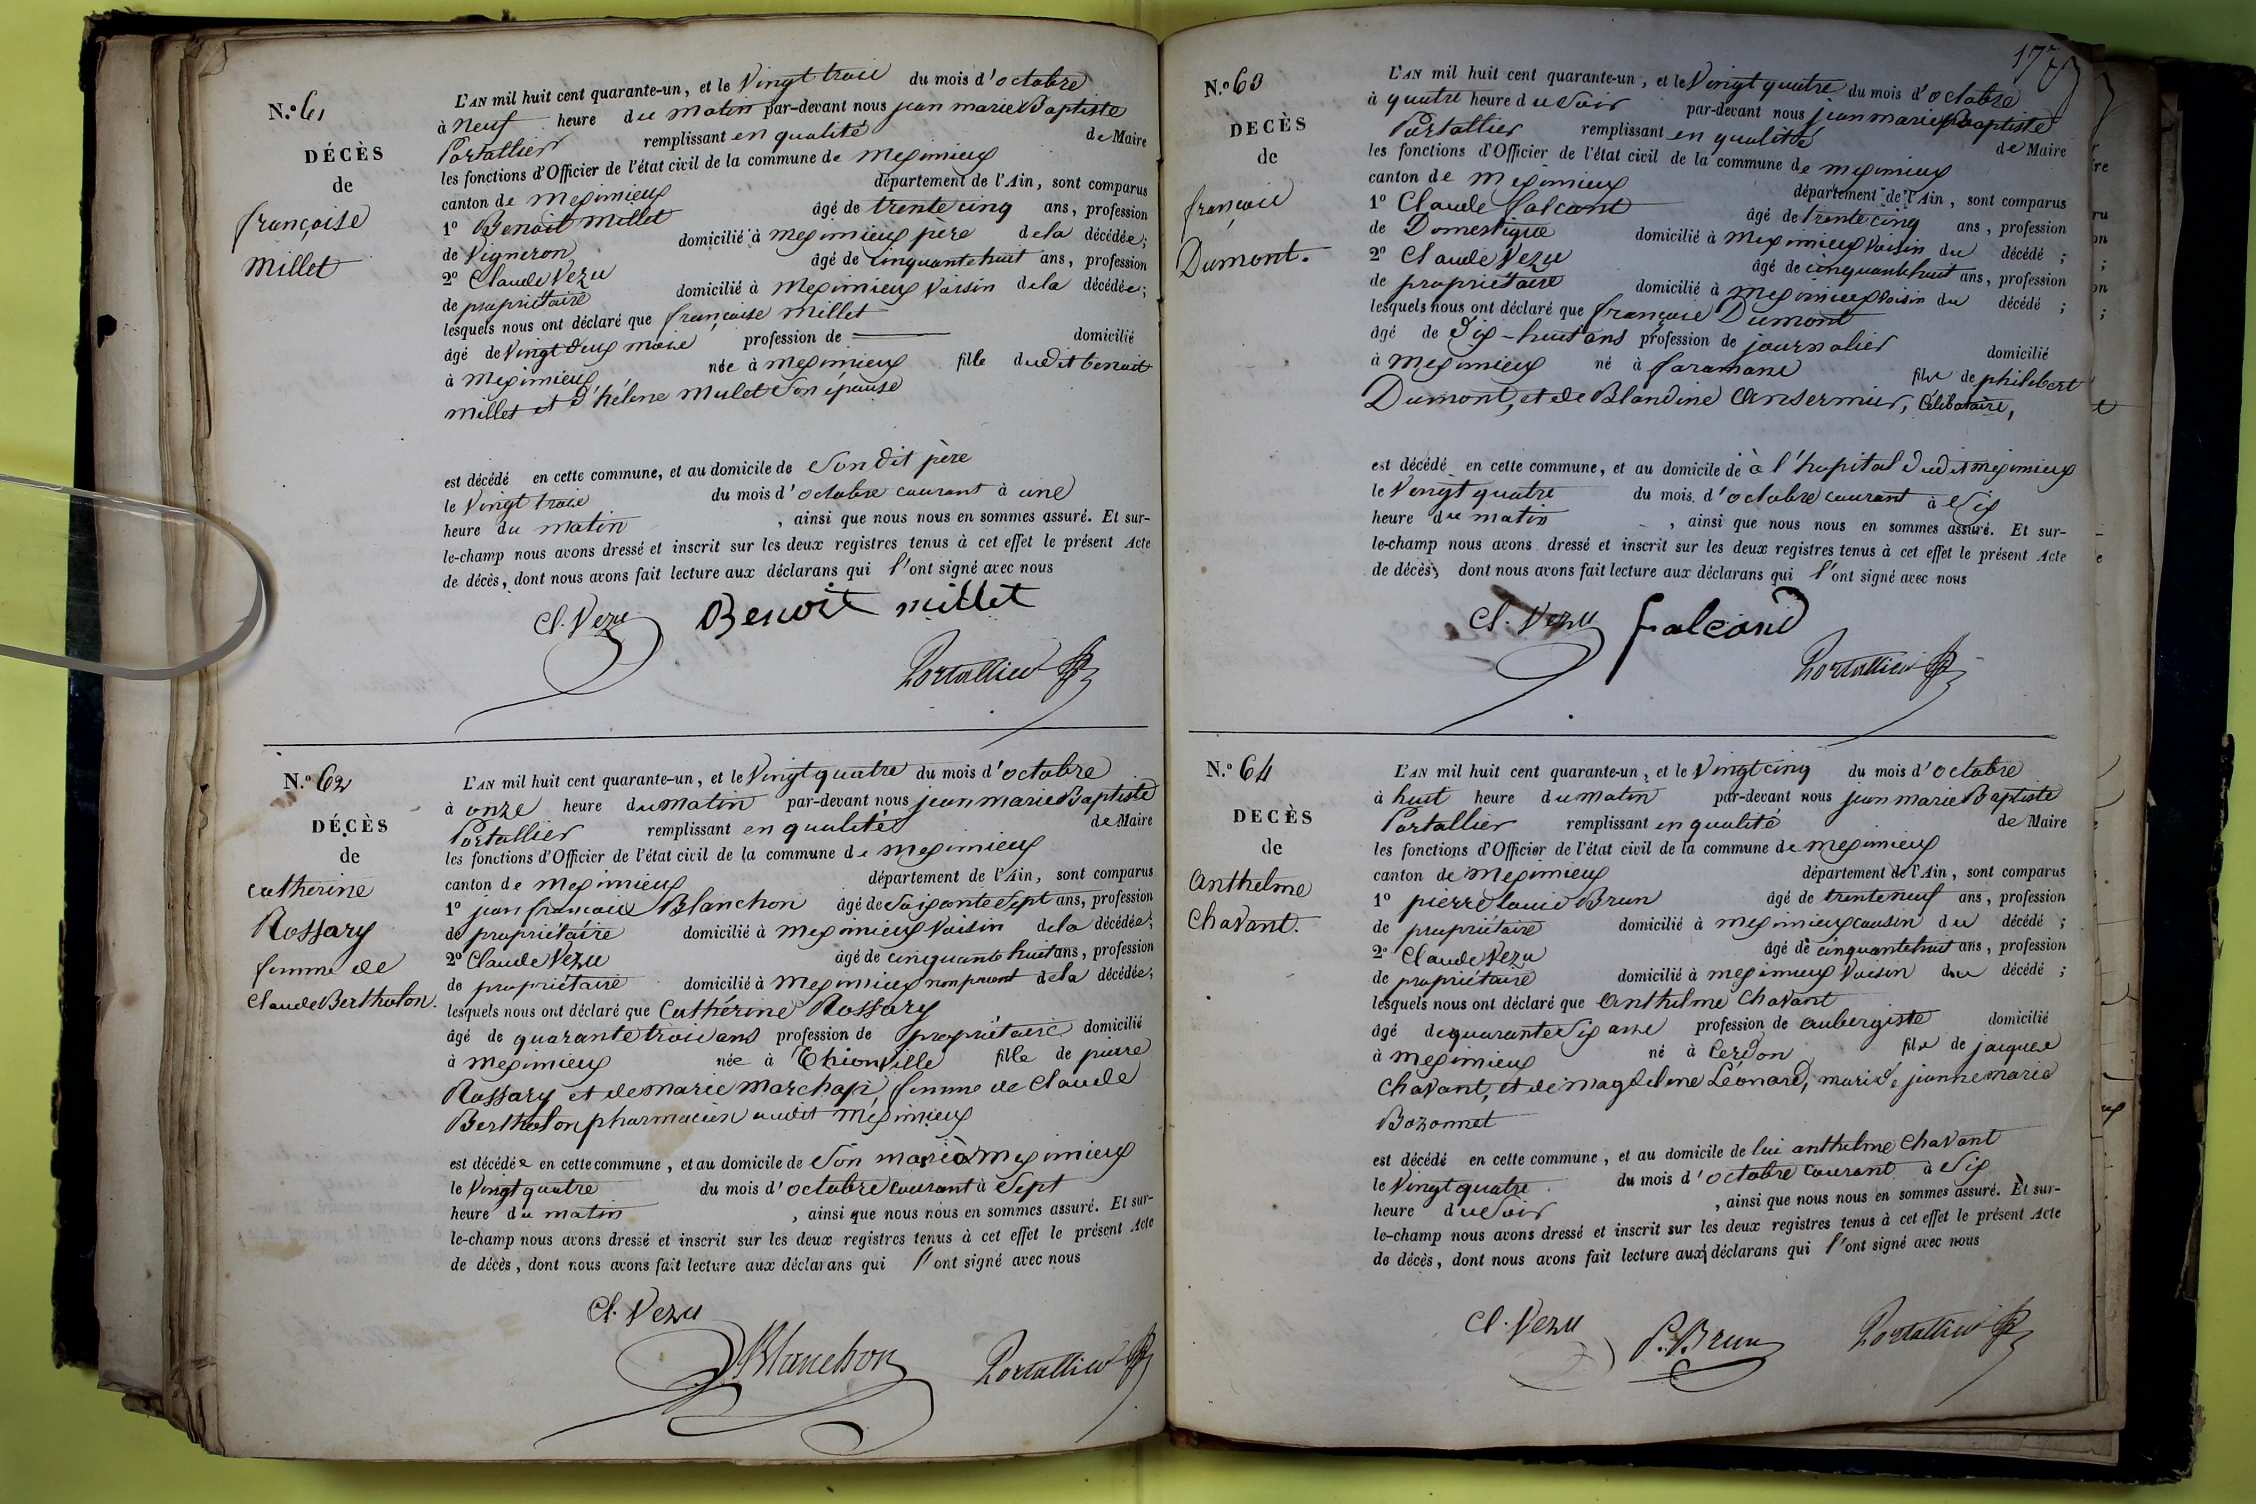 N.o 61
DÉCÈS
de
françoise
Millet
L'AN mil huit cent quarante-un, et le Vingt trois du mois d'octobre
à neuf heure du matin par-devant nous jean marie Baptiste
Portallier remplissant en qualité de Maire
les fonctions d'Officier de l'état civil de la commune de meximieux
canton de meximieux département de l'Ain, sont comparus
1o Benoit Millet âgé de trente cinq ans, profession
de Vigneron domicilié à meximieux père de la décédée;
2o Claude Vezu âgé de cinquante huit ans, profession
de propriétaire domicilié à meximieux Voisin de la décédée;
lesquels nous ont déclaré que françoise millet
âgé de Vingt deux mois profession de domicilié
à meximieux née à meximieux fille dudit benoit
millet et d'hélène Mulet Son épouse
est décédé en cette commune, et au domicile de Son dit père
le Vingt trois du mois d'octobre courant à une
heure du matin, ainsi que nous nous en sommes assuré. Et sur-
le-champ nous avons dressé et inscrit sur les deux registres tenus à cet effet le présent Acte
de décès, dont nous avons fait lecture aux déclarans qui l'ont signé avec nous
Cl. Vezu Benoit millet
Portallier
N.o 62
DÉCÈS
de
catherine
Rossary
femme de
Claude Bertholon.
L'AN mil huit cent quarante-un, et le Vingt quatre du mois d'octobre
à onze heure du matin par-devant nous jean marie Baptiste
Portallier remplissant en qualité de Maire
les fonctions d'Officier de l'état civil de la commune de meximieux
canton de meximieux département de l'Ain, sont comparus
1o jean françois Blanchon âgé de Soixante Sept ans, profession
de propriétaire domicilié à meximieux Voisin de la décédée;
2o Claude Vezu âgé de cinquante huit ans, profession
de propriétaire domicilié à meximieux non parent de la décédée;
lesquels nous ont déclaré que Cathérine Rossary
âgé de quarante trois ans profession de propriétaire domicilié
à meximieux née à Thionville fille de pierre
Rossary et de marie marchap, femme de Claude
Bertholon pharmacien audit meximieux
est décédée en cette commune, et au domicile de Son mari à meximieux
le Vingt quatre du mois d'octobre courant à Sept
heure du matin, ainsi que nous nous en sommes assuré. Et sur-
le-champ nous avons dressé et inscrit sur les deux registres tenus à cet effet le présent Acte
de décès, dont nous avons fait lecture aux déclarans qui l'ont signé avec nous
Cl. Vezu
Blanchon Portallier
N.o 63
DECÈS
de
françois
Dumont.
L'AN mil huit cent quarante-un, et le Vingt quatre du mois d'octobre
à quatre heure du Soir par-devant nous jean marie Baptiste
Portallier remplissant en qualité de Maire
les fonctions d'Officier de l'état civil de la commune de meximieux
canton de meximieux département de l'Ain, sont comparus
1o Claude Falcont âgé de trente cinq ans, profession
de Domestique domicilié à meximieux Voisin du décédé;
2o Claude Vezu âgé de cinquante huit ans, profession
de propriétaire domicilié à meximieux Voisin du décédé;
lesquels nous ont déclaré que françois Dumont
âgé de Dix-huit ans profession de journalier domicilié
à meximieux né à faramans fils de philibert
Dumont, et de Blandine Ansermier, Célibataire,
est décédé en cette commune, et au domicile de à l'hopital dudit meximieux
le Vingt quatre du mois d'octobre courant à Six
heure du matin, ainsi que nous nous en sommes assuré. Et sur-
le-champ nous avons dressé et inscrit sur les deux registres tenus à cet effet le présent Acte
de décès, dont nous avons fait lecture aux déclarans qui l'ont signé avec nous
Cl. Vezu falcond
Portallier
N.o 64
DECÈS
de
Anthelme
Chavant.
L'AN mil huit cent quarante-un, et le Vingt cinq du mois d'octobre
à huit heure du matin par-devant nous jean marie Baptiste
Portallier remplissant en qualité de Maire
les fonctions d'Officier de l'état civil de la commune de meximieux
canton de meximieux département de l'Ain, sont comparus
1o pierre louis Brun âgé de trente neuf ans, profession
de propriétaire domicilié à meximieux cousin du décédé;
2o Claude Vezu âgé de cinquante huit ans, profession
de propriétaire domicilié à meximieux Voisin du décédé;
lesquels nous ont déclaré que Anthelme Chavant
âgé de quarante Six ans profession de aubergiste domicilié
à meximieux né à Cerdon fils de jacques
Chavant, et de magdelene Léonard, mari de jeanne marie
Bozonnet
est décédé en cette commune, et au domicile de lui anthelme Chavant
le Vingt quatre du mois d'octobre courant à Six
heure du Soir, ainsi que nous nous en sommes assuré. Et sur-
le-champ nous avons dressé et inscrit sur les deux registres tenus à cet effet le présent Acte
de décès, dont nous avons fait lecture aux déclarans qui l'ont signé avec nous
Cl. Vezu P. Brun Portallier